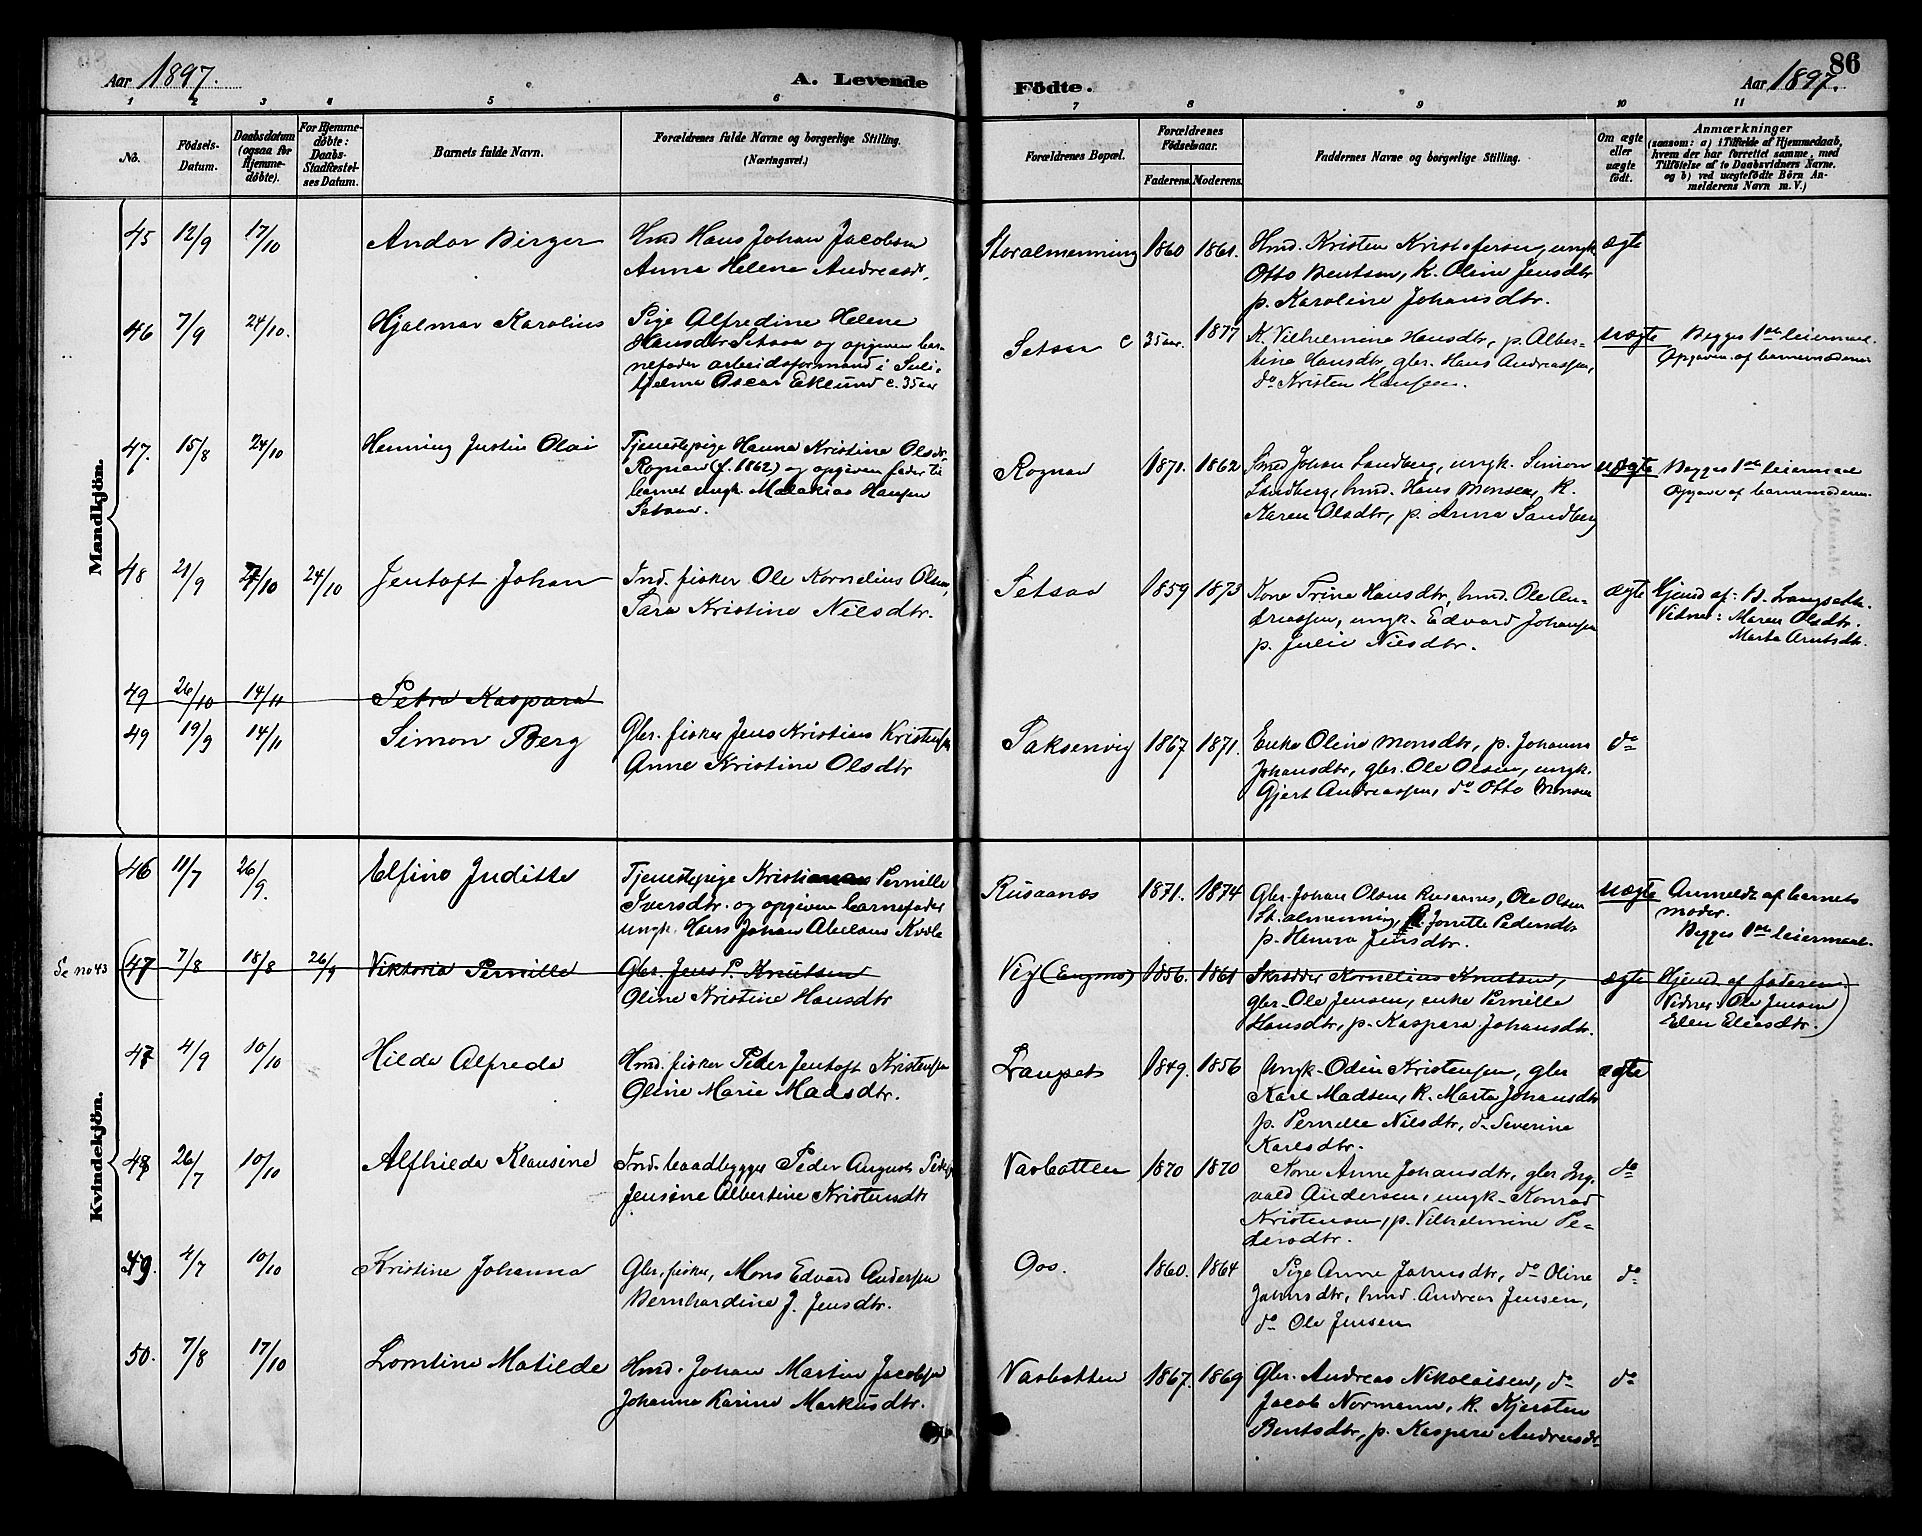 86
Aar 1897.
A. Levende
Födte.
Aar 1897.
1 2 3 4 5 6 7 8 9 10 11
No.
Födsels-Datum.
Daabsdatum (ogsaa for Hjemme-döbte).
For Hjemme-döbte: Daabs-Stadfæstel-ses Datum.
Barnets fulde Navn.
Forældrenes fulde Navne og borgerlige Stilling. (Næringsvei.)
Forældrenes Bopæl.
Forældrenes Födselsaar.
Faderens. Moderens.
Faddernes Navne og borgerlige Stilling.
Om ægte eller uægte födt.
Anmærkninger
(saasom: a) i Tilfælde af Hjemmedaab,
hvem der har forrettet samme, med
Tilföielse af to Daabsvidners Navne.
og b) ved uægtefödte Börn An-
melderens Navn m. V.)
Mandkjön.
45 12/9 17/10 Andor Birger
Hmd Hans Johan Jacobsen
Anna Helene Andreasdr.
Storalmenning 1860 1861.
Hmd. Kristen Kristofersen, ungk.
Otto Bentsen, k. Oline Jensdtr
p. Karoline Johansdtr.
ægte
46 7/9 24/10. Hjalmar Karolius
Pige Alfredine Helene
Hansdtr Setsaa og opgiven bar-
nefader arbeidsformand i Suli-
tjelma Oscar Eklund c. 35 aar
Setsaa c 35 aar. 1877
K. Vilhelmina Hansdtr, p. Alber-
tina Hansdtr, gbr. Hans Andreassen,
do Kristen Hansen.
uægte
Begges 1ste leiermaal.
Opgiven af barnemoderen
47. 15/8 24/10 Henning Justin Olai
Tjenestepige Hanna Kristine Olsdr.
Rognan (f. 1862) og opgiven fader til
barnet ungk. Malakias Hansen
Setsaa.
Rognan 1871. 1862
Smed Johan Sandberg, ungk. Simon
Sandberg, hmd. Hans Monsen, k.
Karen Olsdtr, p. Anna Sandberg
uægte
Begges 1ste leiermaal
Opgave af barnemoderen.
48 21/9 24/10 24/10 Jentoft Johan
Ind. fisker Ole Kornelius Olsen,
Sara Kristine Nilsdtr.
Setsaa 1859 1873
Kone Trine Hansdtr, hmd. Ole An-
dreassen, ungk. Edvard Johansen
p. Julie Nilsdtr.
ægte
Hjemd af: B. Langsette
Vidner: Maren Olsdtr.
Marta Arntsdtr.
49 26/10 14/11 Petra Kaspara
49 19/9 14/11 Simon Berg
Gbr. fisker Jens Kristian Kristensen
Anne Kristine Olsdtr
Saksenvig 1867 1871.
Enke Oline Monsdtr, p. Johanna
Johansdtr, gbr. Ole Olsen, ungk.
Gjert Andreassen, do Otto Monsen
do
Kvindekjön.
46 11/7 26/9. Elfine Juditte
Tjenestepige Kristiana Pernille
Iversdtr. og opgiven barnefader
ungk. Hans Johan Abelsen Kvæle
Rusaanes 1871. 1874
Gbr. Johan Olsen Rusaanes, Ole Olsen
St. almenning, k. Jonette Pedersdtr
p. Hanna Jensdtr.
uægte
Anmeldt af barnets
moder.
Begges 1ste leiermaal.
Se no 43
(47 7/8 18/8 26/9 Viktoria Pernille
Gbr. Jens P. Knutsen
Oline Kristine Hansdtr
Vig (Engmo) 1856. 1861
Skrædder Kornelius Knutsen,
gbr. Ole Jensen, enke Pernille
Hansdtr, p. Kaspara Johansdtr.
ægte
Hjemd af faderen.
Vidner: Ole Jensen
Elen Eliasdtr.)
47 4/9 10/10 Hilda Alfreda
Hmd. fisker Peder Jentoft Kristensen
Oline Marie Madsdtr.
Langset 1849. 1856
Ungk. Odin Kristensen, gbr
Karl Madsen, k. Marta Johansdtr
p. Pernille Nilsdtr, do Severine
Karlsdtr.
ægte
48 26/7 10/10 Alfhilda Klausine
Ind. baadbygger Peder August Peders.
Jensine Albertine Kristensdtr
Vasbotten 1870 1870
Kone Anne Johansdtr, gbr Ing-
vald Andersen, ungk. Konrad
Kristensen, p. Vilhelmine Pe-
dersdtr.
do
49. 4/7 10/10 Kristine Johanna
Gbr. fisker, Mons Edvard Anderssen
Bernhardine J. Jensdtr.
Oos. 1860. 1864
Pige Anne Johnsdtr, do Oline
Johnsdtr, hmd. Andreas Jensen,
do Ole Jensen
do
50. 7/8 17/10 Lorntine Matilde
Hmd. Johan Martin Jacobsen
Johanna Karine Markusdtr.
Vasbotten 1867. 1869
Gbr. Andreas Nikolaisen, do
Jacob Normann, k. Kjersten
Bentsdtr, p. Kaspara Andreasdr
do